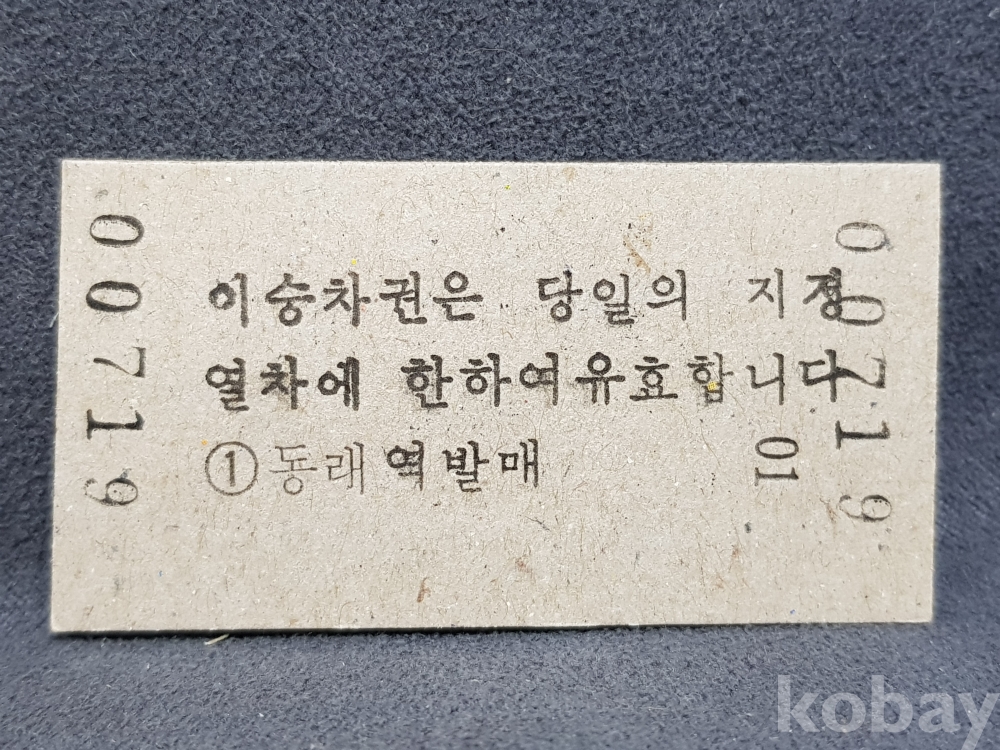 00719
이승차권은 당일의 지정
열차에 한하여유효합니다
①동래역발매
01
00719
kobay